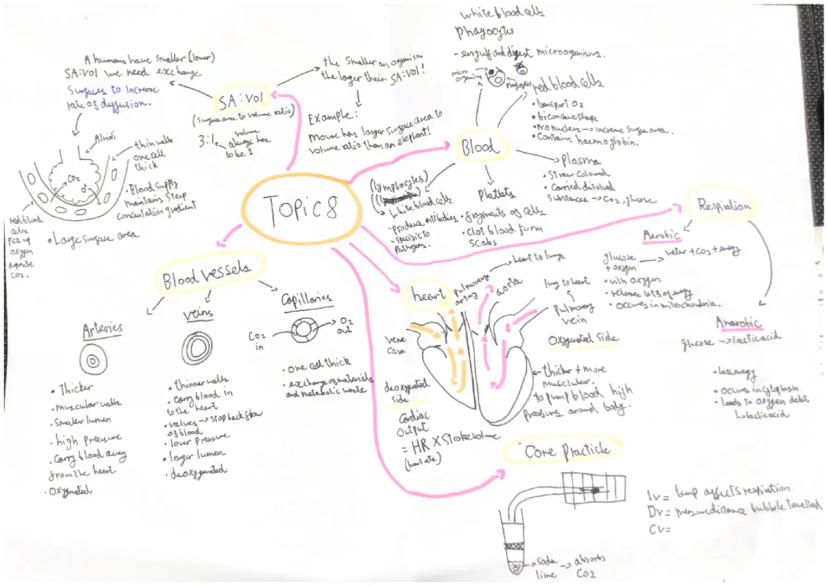 TOPIC 8
SA:Vol
(Surface area to volume ratio)
3:1 volume
always has
to be 1
A humans have smaller (lower)
SA:Vol we need exchange
Surfaces to increase
rate of diffusion.
Alvioli
thin walls
one cell
thick
CO2
O2
• Blood supply
maintains steep
concentration gradient
red blood
cells
pick up
oxygen
CO2.
• Large surface area
the smaller an organism
the larger their SA:Vol!
Example:
Mouse has larger surface area to
volume ratio than an elephant!
Blood
white blood cells
phagocytes
- engulf and digest microorganisms.
micro
organism
red blood cells
• transport O2
• biconcave shape
• no nucleus → increase surface area.
• Contains haemoglobin.
Plasma
• Straw coloured
• Carries dissolved
Substances → CO2, glucose
Platlets
• fragments of cells
• clot blood form
scabs
(lymphocytes)
white blood cells
- produce antibodies
• specific to
pathogens.
Respiration
Aerobic
glucose + oxygen → water + CO2 + energy
• with oxygen
• release lots of energy
• occurs in mitochondria.
Anarobic
glucose → lactic acid
• less energy
• occurs in cytoplasm
• leads to oxygen debt
↳ lactic acid
Blood vessels
Arteries
• Thicker
• muscular walls
• smaller lumen
• high pressure
• Carry blood away
from the heart
• Oxygenated
Veins
• thinner walls
• carry blood in
to the heart
• valves → stop back flow
of blood
• lower pressure
• larger lumen
• deoxygenated
Capillaries
CO2
in
O2
out
• one cell thick
• exchange of materials
and metabolic waste
heart
pulmonary
artery
heart to lungs
aorta
lung to heart
pulmonary
vein
vena
cava
Oxygenated side
deoxygenated
side
• thicker + more
muscular.
to pump blood high
pressure around body.
Cardiac
Output
= HR × Stroke volume
(heart rate)
Core Practicle
soda
lime → absorbs
CO2
IV = temp affects respiration
DV = measure distance bubble travelled
CV =